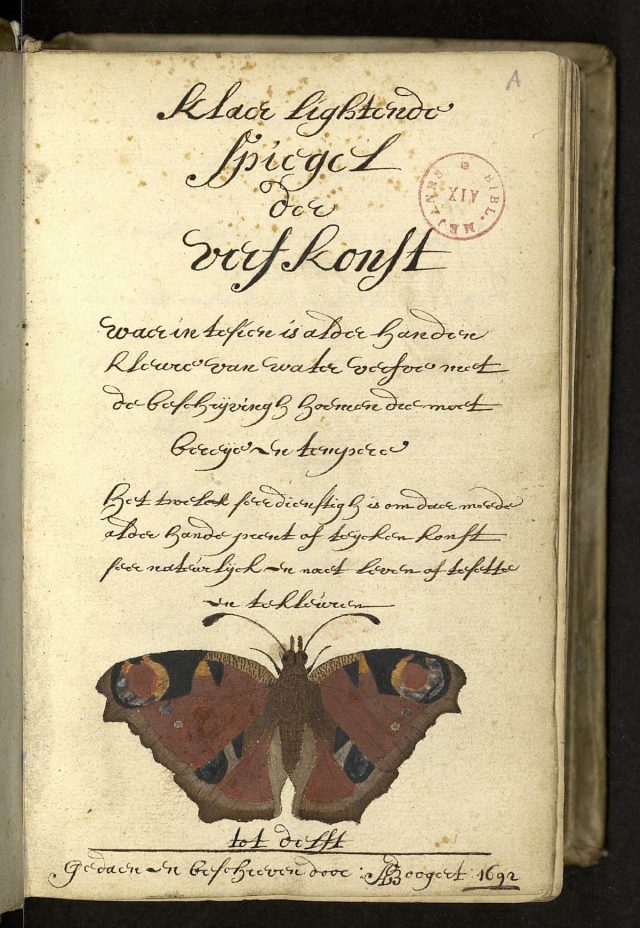 A
Klaer lightende
Spiegel
der
verfkonst
BIBL. MEJANES
AIX
waer in tesien is alder handen
kleure van water verfve met
de beschrijvingh hoemen die moet
bereije en tempere
Het twelck seer dienstigh is om daer meede
alder hande prent of teycken konst
seer natuerlijck en naet leven af tesette
en tekleuren
tot delft
Gedaen en beschreven door: A Boogert: 1692